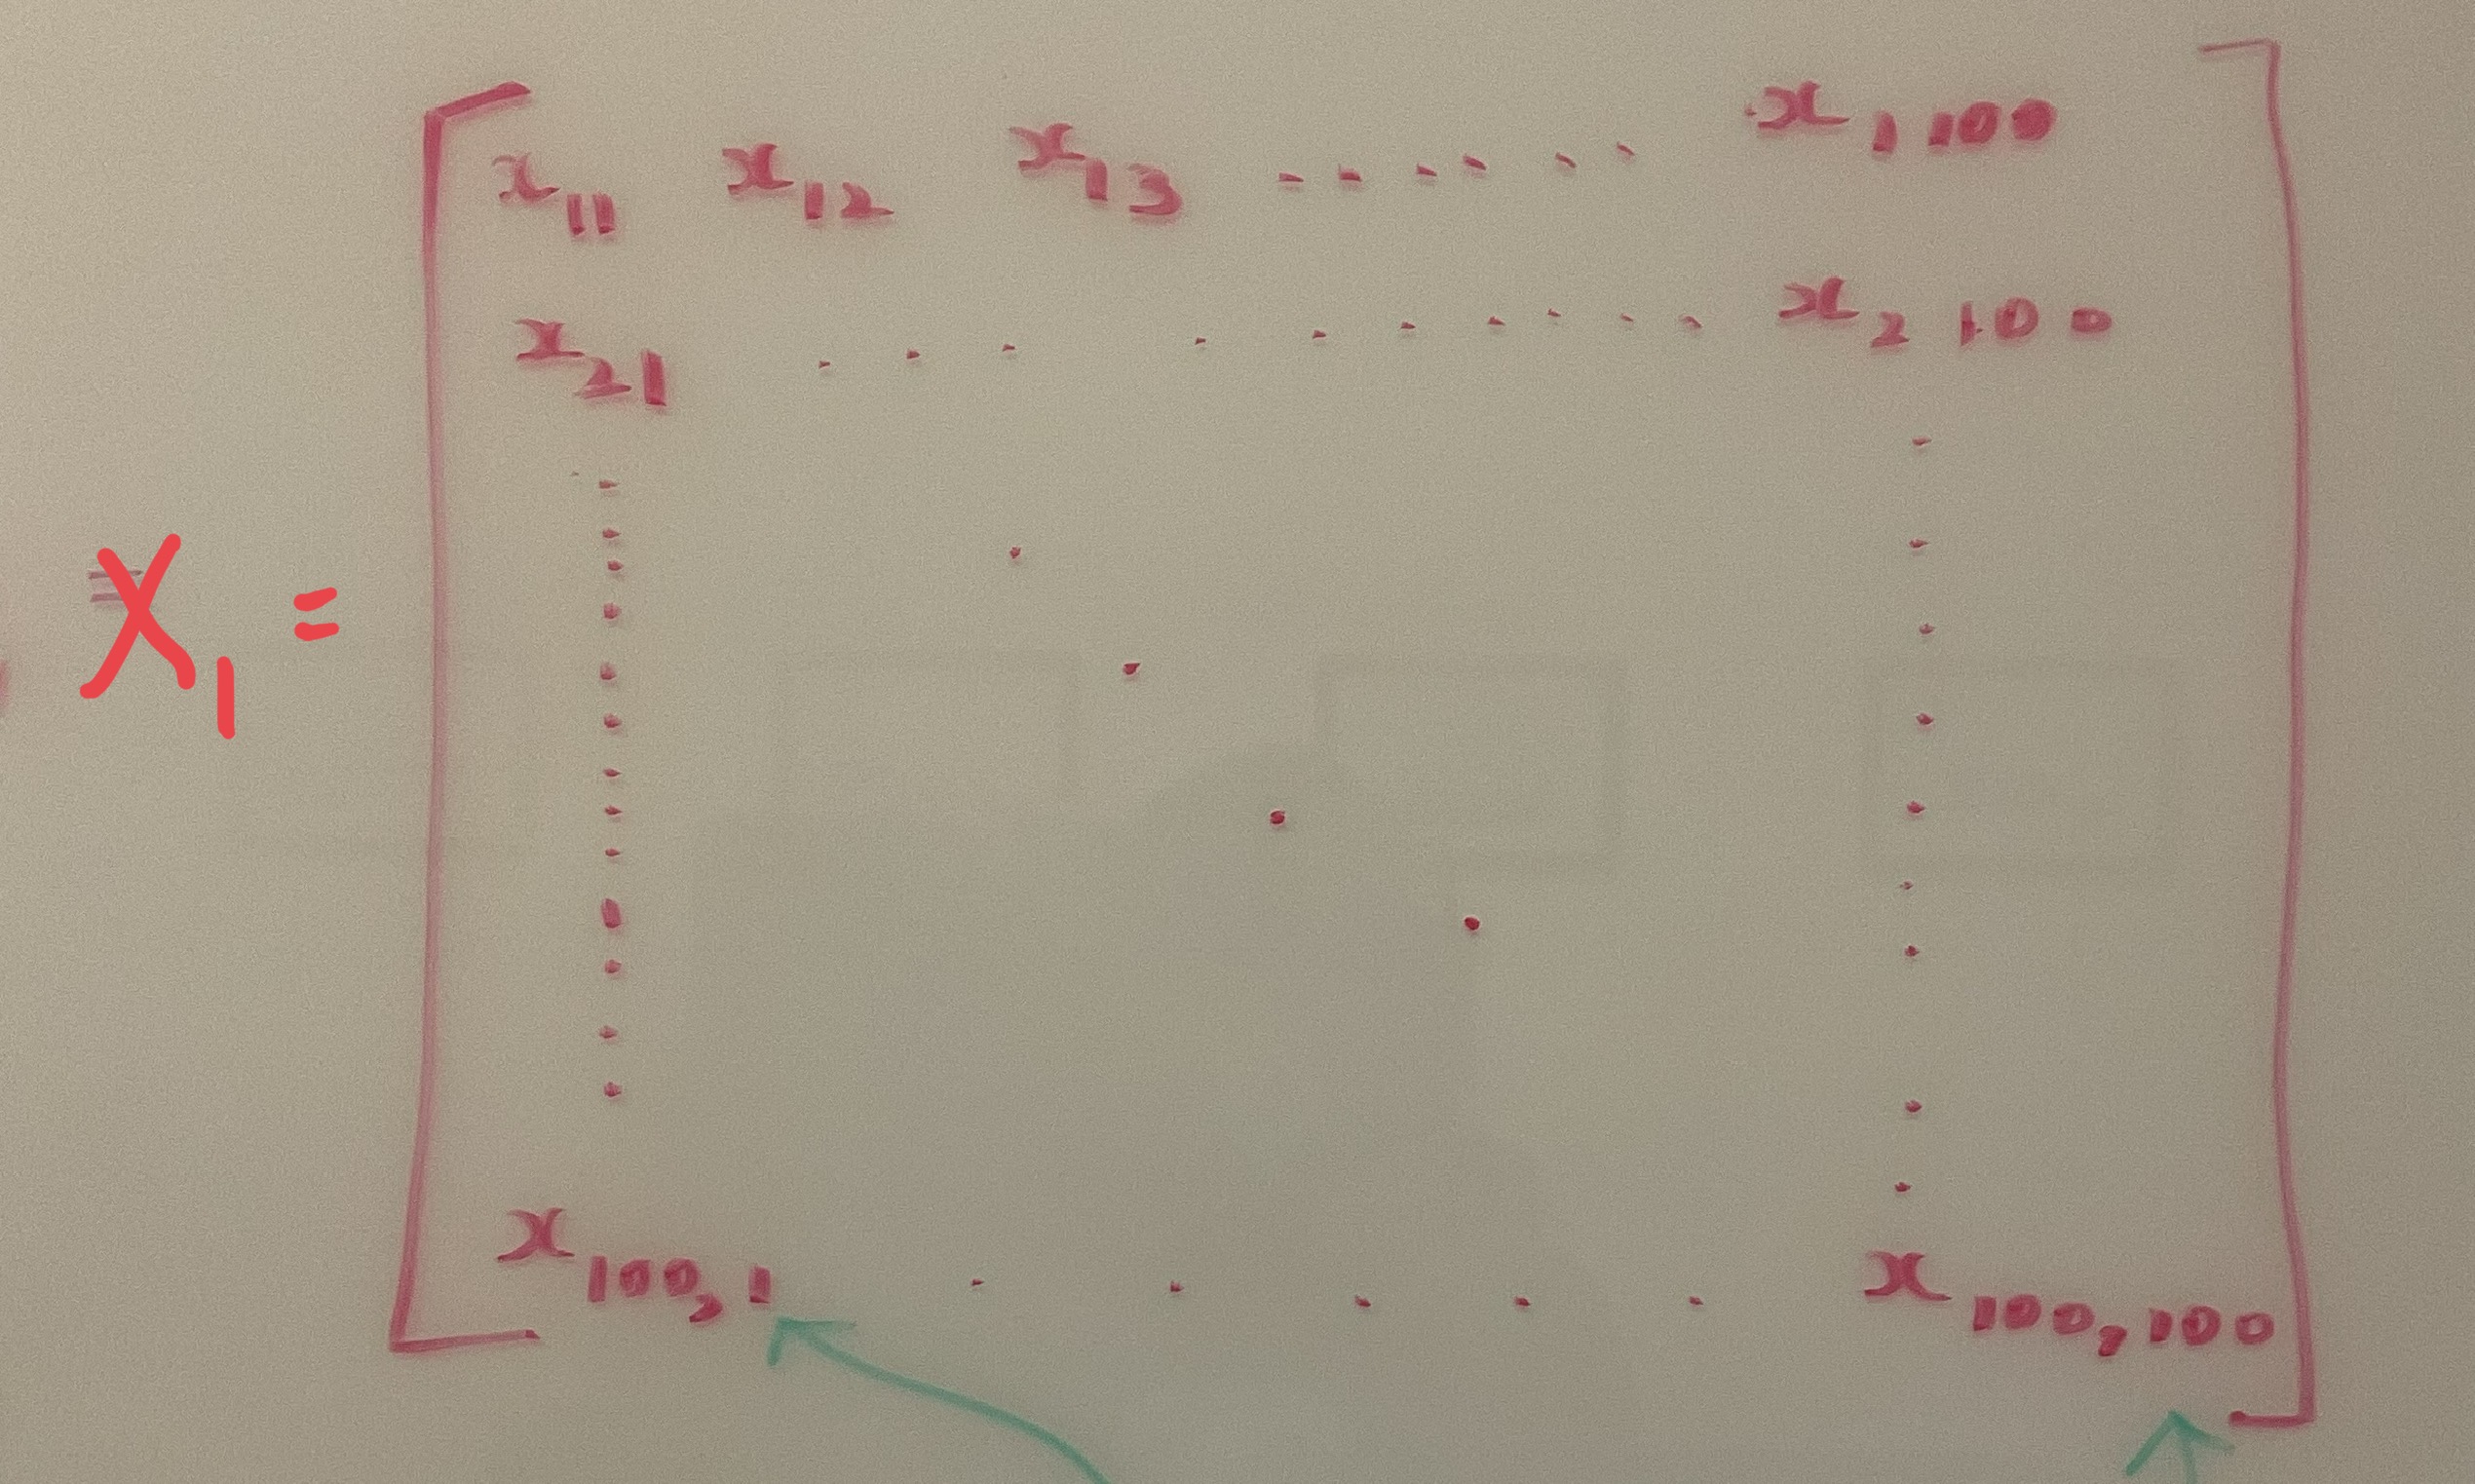 x₁₁ x₁₂ x₁₃ ...... x₁ ₁₀₀
x₂₁ .......... x₂ ₁₀₀
X₁ =
x₁₀₀,₁ ..... x₁₀₀,₁₀₀